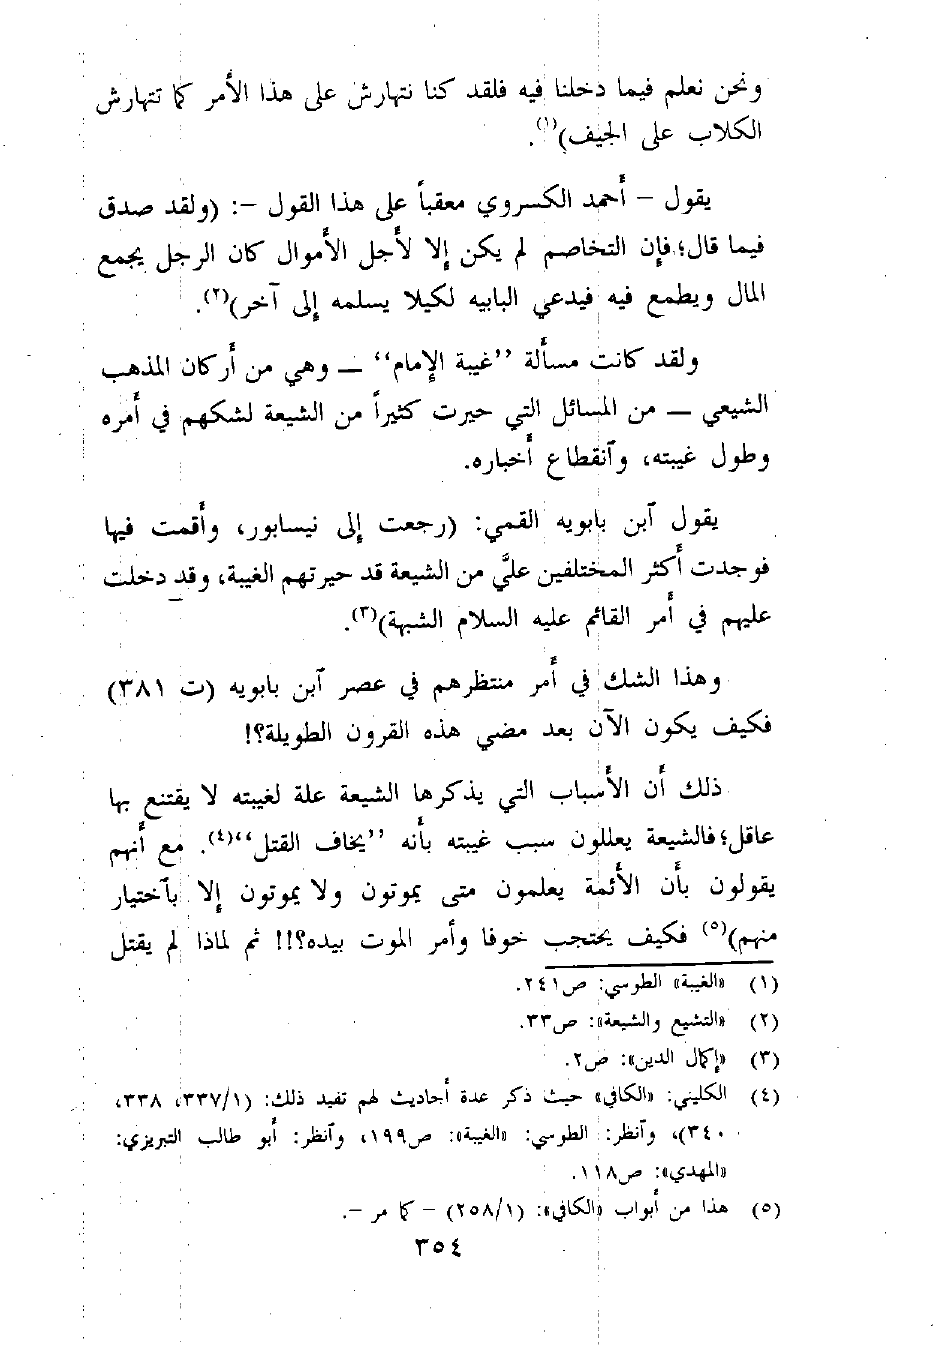 ونحن نعلم فيما دخلنا فيه فلقد كنا نتهارش على هذا الأمر كما تتهارش
الكلاب على الجيف)(١).
يقول – أحمد الكسروي معقباً على هذا القول –: (ولقد صدق
فيما قال؛ فإن التخاصم لم يكن إلا لأجل الأموال كان الرجل يجمع
المال ويطمع فيه فيدعي البابيه لكيلا يسلمه إلى آخر)(٢).
ولقد كانت مسألة ’’غيبة الإمام‘‘ ــ وهي من أركان المذهب
الشيعي ــ من المسائل التي حيرت كثيراً من الشيعة لشكهم في أمره
وطول غيبته، وآنقطاع أخباره.
يقول آبن بابويه القمي: (رجعت إلى نيسابور، وأقمت فيها
فوجدت أكثر المختلفين عليَّ من الشيعة قد حيرتهم الغيبة، وقد دخلت
عليهم في أمر القائم عليه السلام الشبهة)(٣).
وهذا الشك في أمر منتظرهم في عصر آبن بابويه (ت ٣٨١)
فكيف يكون الآن بعد مضي هذه القرون الطويلة؟!
ذلك أن الأسباب التي يذكرها الشيعة علة لغيبته لا يقتنع بها
عاقل؛ فالشيعة يعللون سبب غيبته بأنه ’’يخاف القتل‘‘(٤). مع أنهم
يقولون بأن الأئمة يعلمون متى يموتون ولا يموتون إلا بآختيار
منهم)(٥) فكيف يحتجب خوفا وأمر الموت بيده؟!! ثم لماذا لم يقتل
(١) «الغيبة» الطوسي: ص٢٤١.
(٢) «التشيع والشيعة»: ص٣٣.
(٣) «إكمال الدين»: ص٢.
(٤) الكليني: «الكافي» حيث ذكر عدة أحاديث لهم تفيد ذلك: (٣٣٧/١، ٣٣٨،
٣٤٠)، وآنظر: الطوسي: «الغيبة»: ص١٩٩، وآنظر: أبو طالب التبريزي:
«المهدي»: ص١١٨.
(٥) هذا من أبواب «الكافي»: (٢٥٨/١) – كما مر –.
٣٥٤